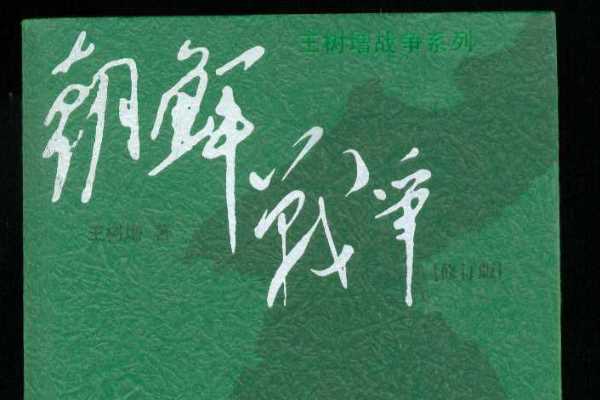 王树增战争系列
朝鲜
战争
王树增 著
[修订版]